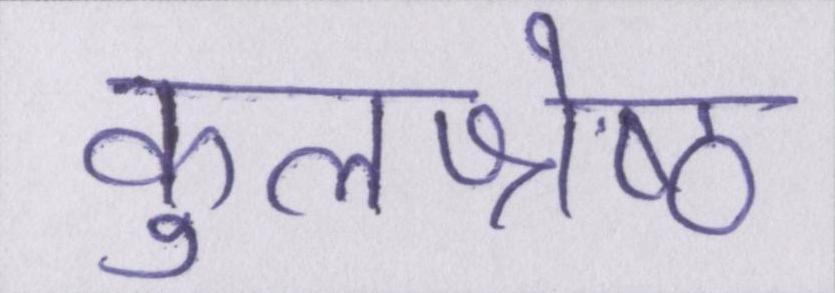 कुलश्रेष्ठ